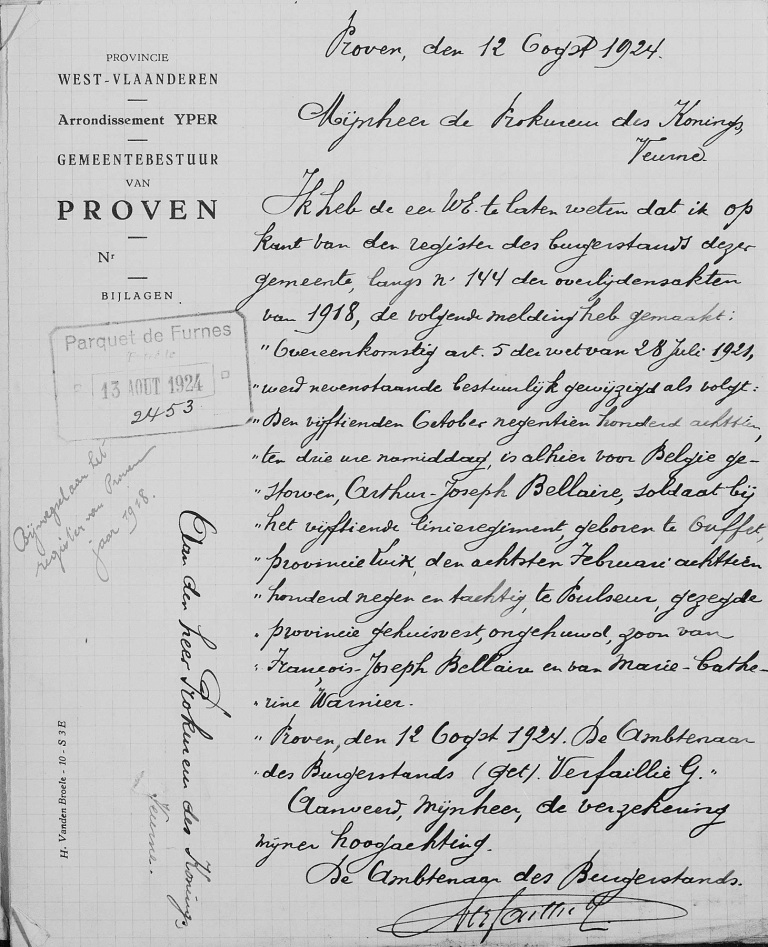 PROVINCIE
WEST-VLAANDEREN
Arrondissement YPER
GEMEENTEBESTUUR
VAN
PROVEN
Nr
BIJLAGEN
Parquet de Furnes
13 AOUT 1924
2453
Bijvoegselaan het
register van Proven
jaar 1918.
Aan den heer Prokureur des Konings
Veurne.
H. Vanden Broele - 10 - S 3 E
Proven, den 12 Oogst 1924.
Mijnheer de Prokureur des Konings,
Veurne.
Ik heb de eer UE. te laten weten dat ik op
kant van den register des burgerstands dezer
gemeente, langs nr 144 der overlijdensakten
van 1918, de volgende melding heb gemaakt:
" Overeenkomstig art. 5 der wet van 28 Juli 1921,
" werd nevenstaande bestuurlijk gewijzigd als volgt:
" Den vijftienden October negentien honderd achttien,
" ten drie ure namiddag, is alhier voor Belgie ge-
" storven, Arthur-Joseph Bellaire, soldaat bij
" het vijftiende linieregiment, geboren te Ouffet,
" provincie Luik, den achtsten Februari achttien
" honderd negen en tachtig, te Poulseur, gezegde
" provincie gehuisvest, ongehuwd, zoon van
" François-Joseph Bellaire en van Marie-Cathe-
" rine Warnier.
" Proven, den 12 Oogst 1924. De Ambtenaar
" des Burgerstands (get). Verfaillie G."
Aanveerd, Mijnheer, de verzekering
mijner hoogachting.
De Ambtenaar des Burgerstands.